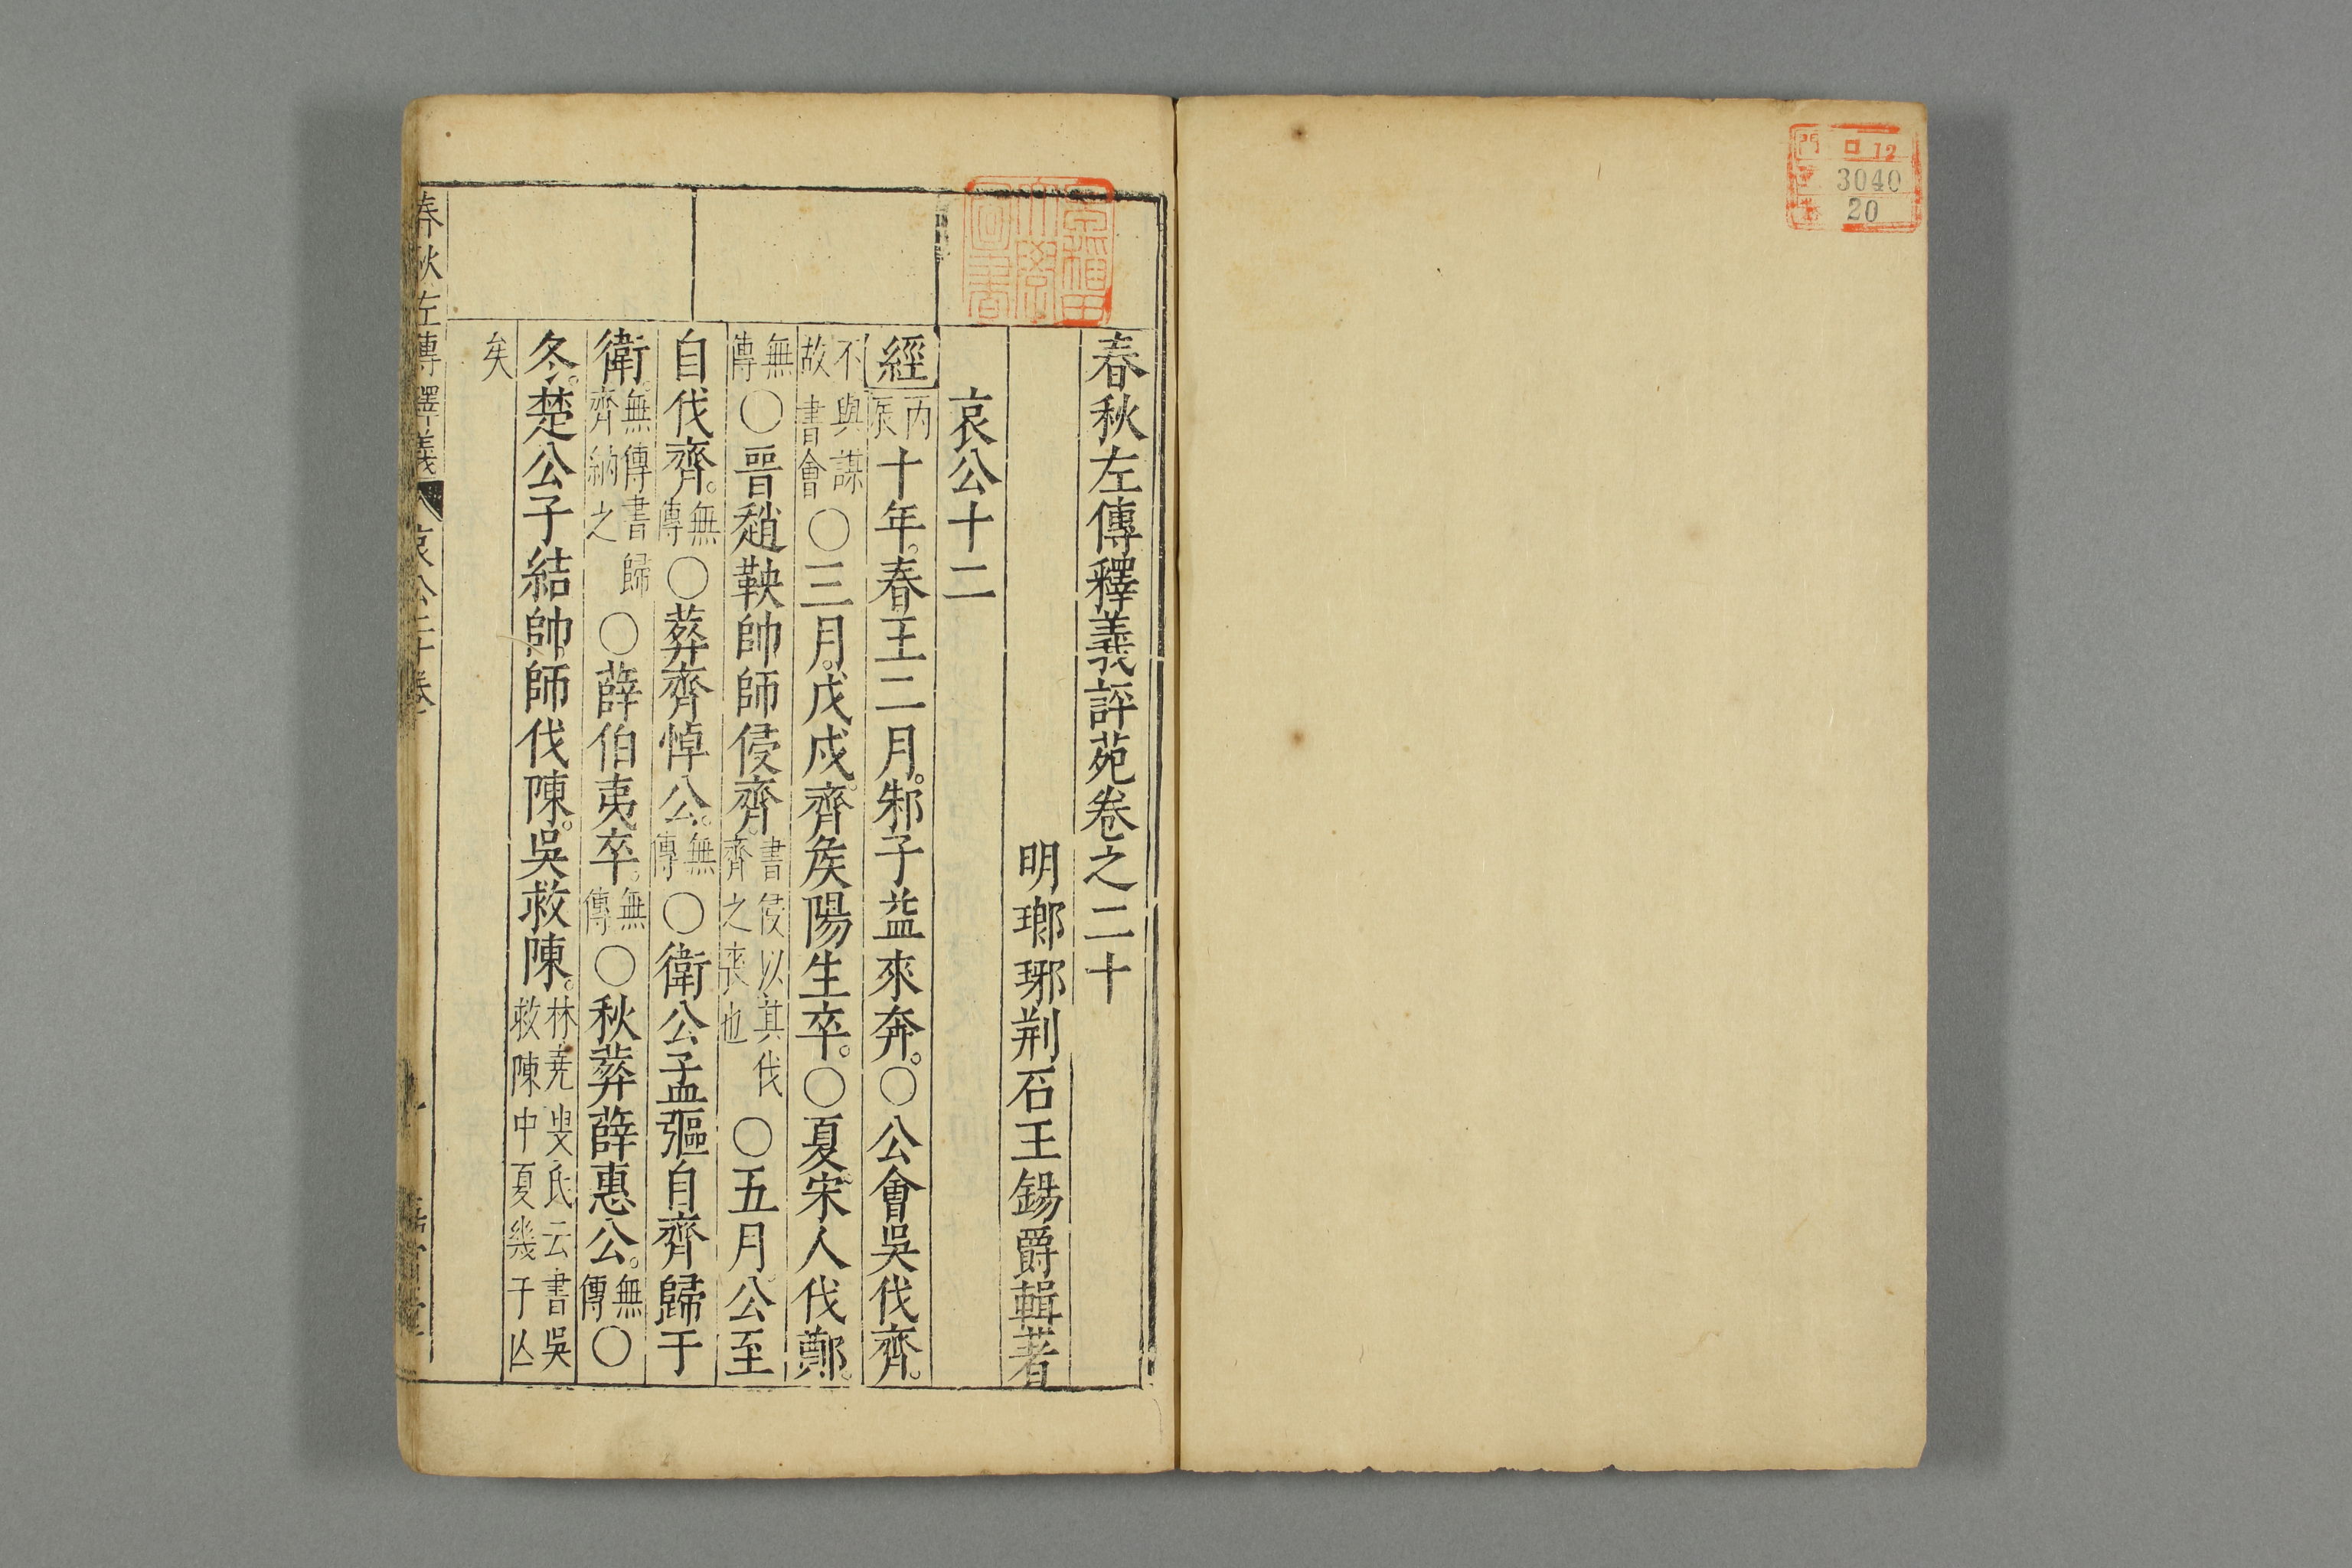 門 口 12
3040
20
早稲田
大學
圖書
春秋左傳釋義評苑卷之二十
明瑯琊荆石王錫爵輯著
哀公十二
經丙辰十年。春王二月。邾子益來奔。〇公會吳伐齊。
不與謀故書會〇三月。戊戌。齊矦陽生卒。〇夏。宋人伐鄭。
無傳〇晉趙鞅帥師侵齊。書侵以其伐齊之喪也〇五月。公至
自伐齊。無傳〇葬齊悼公。無傳〇衛公孟彄自齊歸于
衛。無傳書歸齊納之〇薛伯夷卒。無傳〇秋葬薛惠公。無傳〇
冬。楚公子結帥師伐陳。吳救陳。林堯叟氏云書吳救陳中夏幾于亾
矣
春秋左傳釋義 哀公二十卷